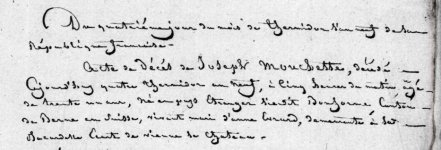 Du quatrième jour du mois de Thermidor l'an neuf de la
République française -
Acte de Décès de Joseph Mouchette, décédé
Cejourd'huy quatre Thermidor an neuf, à cinq heures du matin, agé
de trente un ans, né en pays Etranger
de Berne en Suisse, vivant mari d'anne Evrard, demeurante à St
de vienne le Chateau -